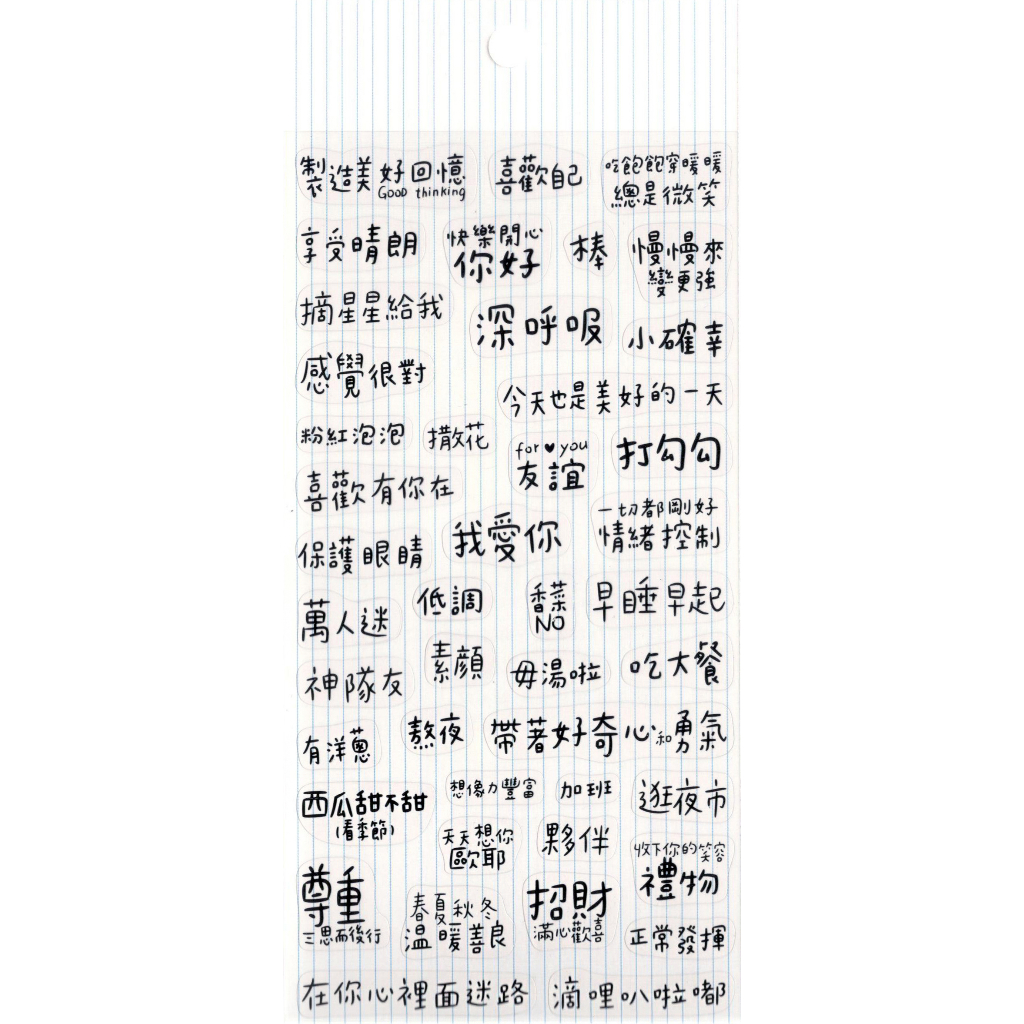 製造美好回憶
Good thinking
喜歡自己
吃飽飽穿暖暖
總是微笑
享受晴朗
快樂開心
你好
棒
慢慢來
變更強
摘星星給我
深呼吸
小確幸
感覺很對
今天也是美好的一天
粉紅泡泡
撒花
for♥you
友誼
打勾勾
喜歡有你在
一切都剛好
情緒控制
我愛你
保護眼睛
低調
香菜
NO
早睡早起
萬人迷
素顏
毋湯啦
吃大餐
神隊友
熬夜
帶著好奇心和勇氣
有洋蔥
西瓜甜不甜
(看季節)
想像力豐富
加班
逛夜市
天天想你
歐耶
夥伴
收下你的笑容
禮物
尊重
三思而後行
春夏秋冬
温暖善良
招財
滿心歡喜
正常發揮
在你心裡面迷路
滴哩叭啦嘟